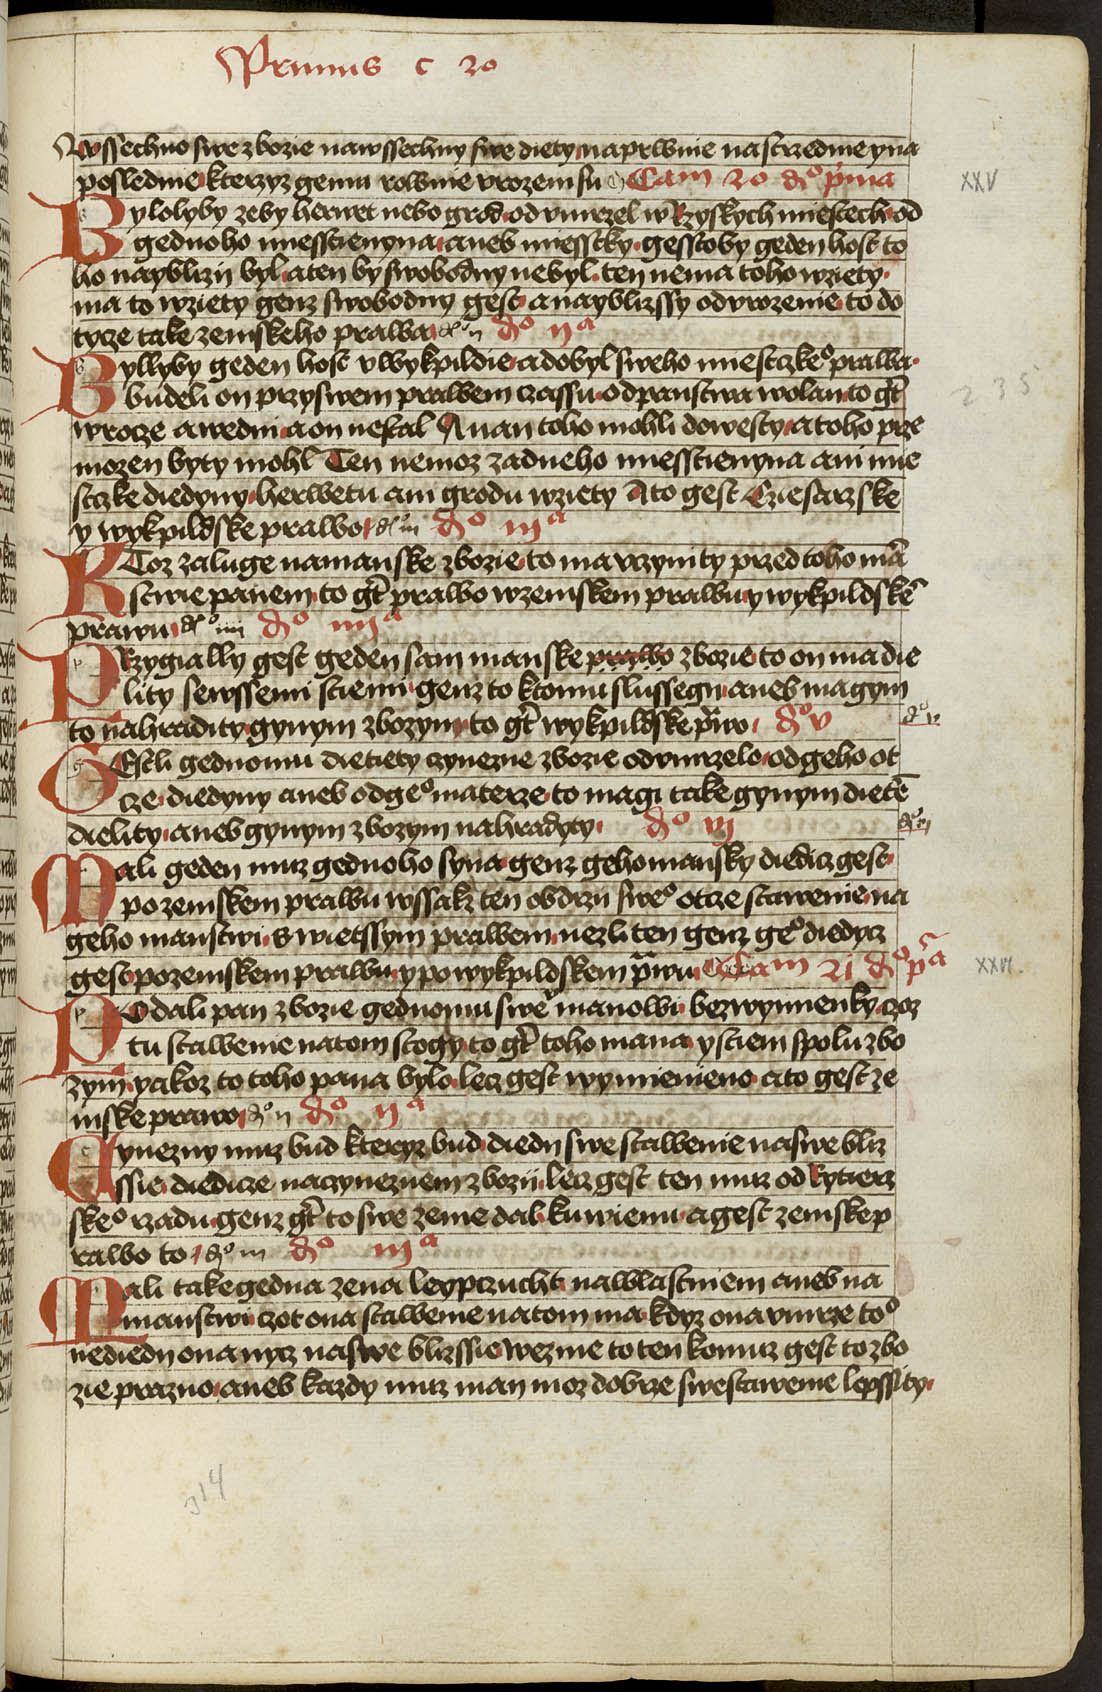 Primus c 20
wssechno swe zbozie nawssechny swe diety naprwnie nastrzednie yna
poslednie kterzyz gemu rownie vrozeni su Cam 20 dᵒ prima
XXV
Bylohyby zeby herwet nebo grod odumrzel w Rzyskych miestech od
gednoho miesstienyna aneb miesstky gesstoby geden host to
ho nayblizii byl aten by swobodny nebyl ten nema toho wziety
ma to wziety genz swobodny gest a nayblizssy odvrozenie to do
tycze take zemskeho prawa dᵒ ii dᵒ iiᵃ
Byllyby geden host vwykpildie adobyl sweho miestzkeᵒ prawa
budeli on przyswem prawem czassu odpanstwa wolan to gt̄
wrocze awedni aon nestal Anan toho mohli dowesty atoho prze
mozen byty mohl Ten nemoz zadneho miesstienyna ani mie
stzke diedyny herwetu ani grodu wziety Ato gest Cziesarzske
y wykpildske prawo dᵒ iii dᵒ iiiᵃ
235
KToz zaluge namanske zbozie to ma vczynity przed toho mā
stwie panem to gt̄ prawo wzemskem prawu y wykpildskē
prawu dᵒ iiii dᵒ iiiiᵃ
PRzygially gest geden sam manske prawo zbozie to on ma die
lity sewssemi stiemi genz to ktomu slussegii aneb magym
to nahradity gynym zbozym to gt̄ wykpildske p̄wo dᵒ v
dᵒ v
GEstli gednomu dietiety czynezne zbozie odumrzelo od geho ot
cze diedyny aneb odgeᵒ materze to magi take gynym dietē
dielity aneb gynym zbozym nahradyty dᵒ vi
dᵒ vi
Mali geden muz gednoho syna genz geho mansky diedicz gest
po zemskem prawu wssak ten obdrzii sweᵒ otcze stawenie na
geho manstwi s wietssym prawem nezli ten genz geᵒ diedycz
gest pozemskem prawu y powykpildskem p̄wu Cam 21 dᵒ pᵃ
XXVI.
POdali pan zbozie gednomu sweᵒ manowi bezwymienky czoz
tu stawenie natom stogy to gt̄ toho mana y stiem spolu zbo
zym yakoz to toho pana bylo lecz gest wymienieno ato gest ze
mske prawo dᵒ ii dᵒ iiᵃ
Cynezny muz bud kteryz bud diedii swe stawenie naswe bliz
ssie diedicze naczyneznem zbozii lecz gest ten muz od Rytierz
skeᵒ rzadu genz gt̄ to swe zeme dal kuwienu agest zemske p
rawo to dᵒ iii dᵒ iiiᵃ
Mali take gedna zena leypczucht nawlastniem aneb na
manstwi czot ona stawenie natom ma kdyz ona vmrze toᵒ
nediedii ona nycz naswe blizssie wezme to ten komuz gest to zbo
zie prazno aneb kazdy muz man moz dobrze swe stawenie lepssity
314